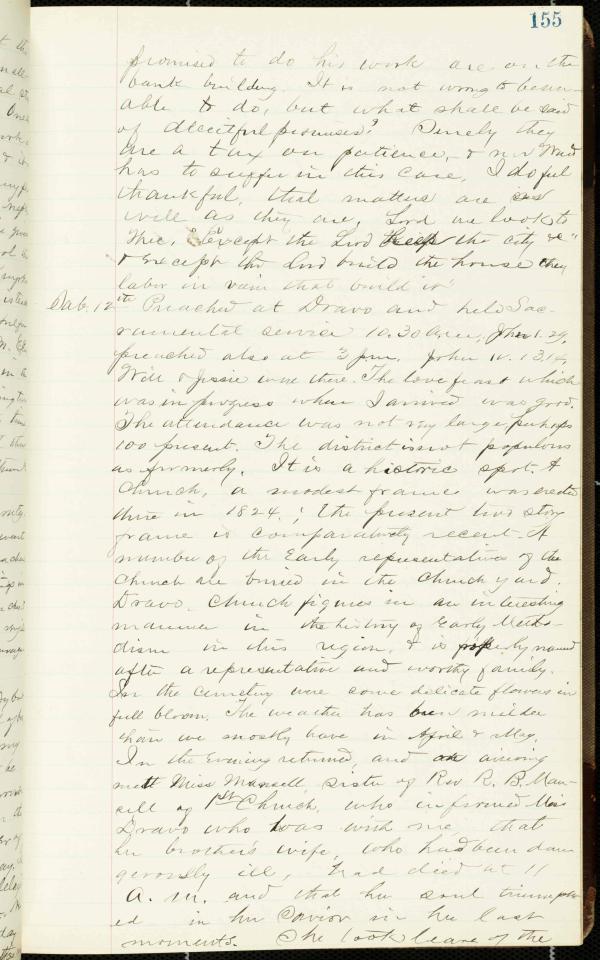 155
promised to do his work are on the
bank building. It is not wrong to be un-
able to do, but what shall be said
of deceitful promises? Surely they
are a tax on patience, & now Ward
has to suffer in this case. I do feel
thankful, that matters are as
well as they are. Lord we look to
Thee, "Except the Lord Keep the city &c"
& Except the Lord build the house they
labor in vain that build it"
Sab. 12th Preached at Dravo and held Sac-
ramental service 10.30 a.m. John 1.29,
preached also at 3 p.m. John 10. 13,14,
Will & Jessie were there. The love feast which
was in progress when I arrived was good.
The attendance was not very large, perhaps
100 present. The district is not populous
as formerly. It is a historic spot. A
Church, a modest frame was erected
there in 1824; the present two story
frame is comparatively recent. A
number of the Early representatives of the
Church are buried in the Church yard.
Dravo Church figures in an interesting
manner in the history of Early Metho-
dism in this region, & is properly named
after a representative and worthy family.
In the cemetery were some delicate flowers in
full bloom. The weather has been milder
than we mostly have in April & May.
In the Evening returned, and on arriving
mett Miss Mansell, sister of Rev R. B. Man-
sell of 1st Church, who informed Miss
Dravo who was with me, that
her brother's wife, who had been dan
gerously ill, had died at 11
A. M. and that her soul triumph
ed in her Savior in her last
moments. She took leave of the